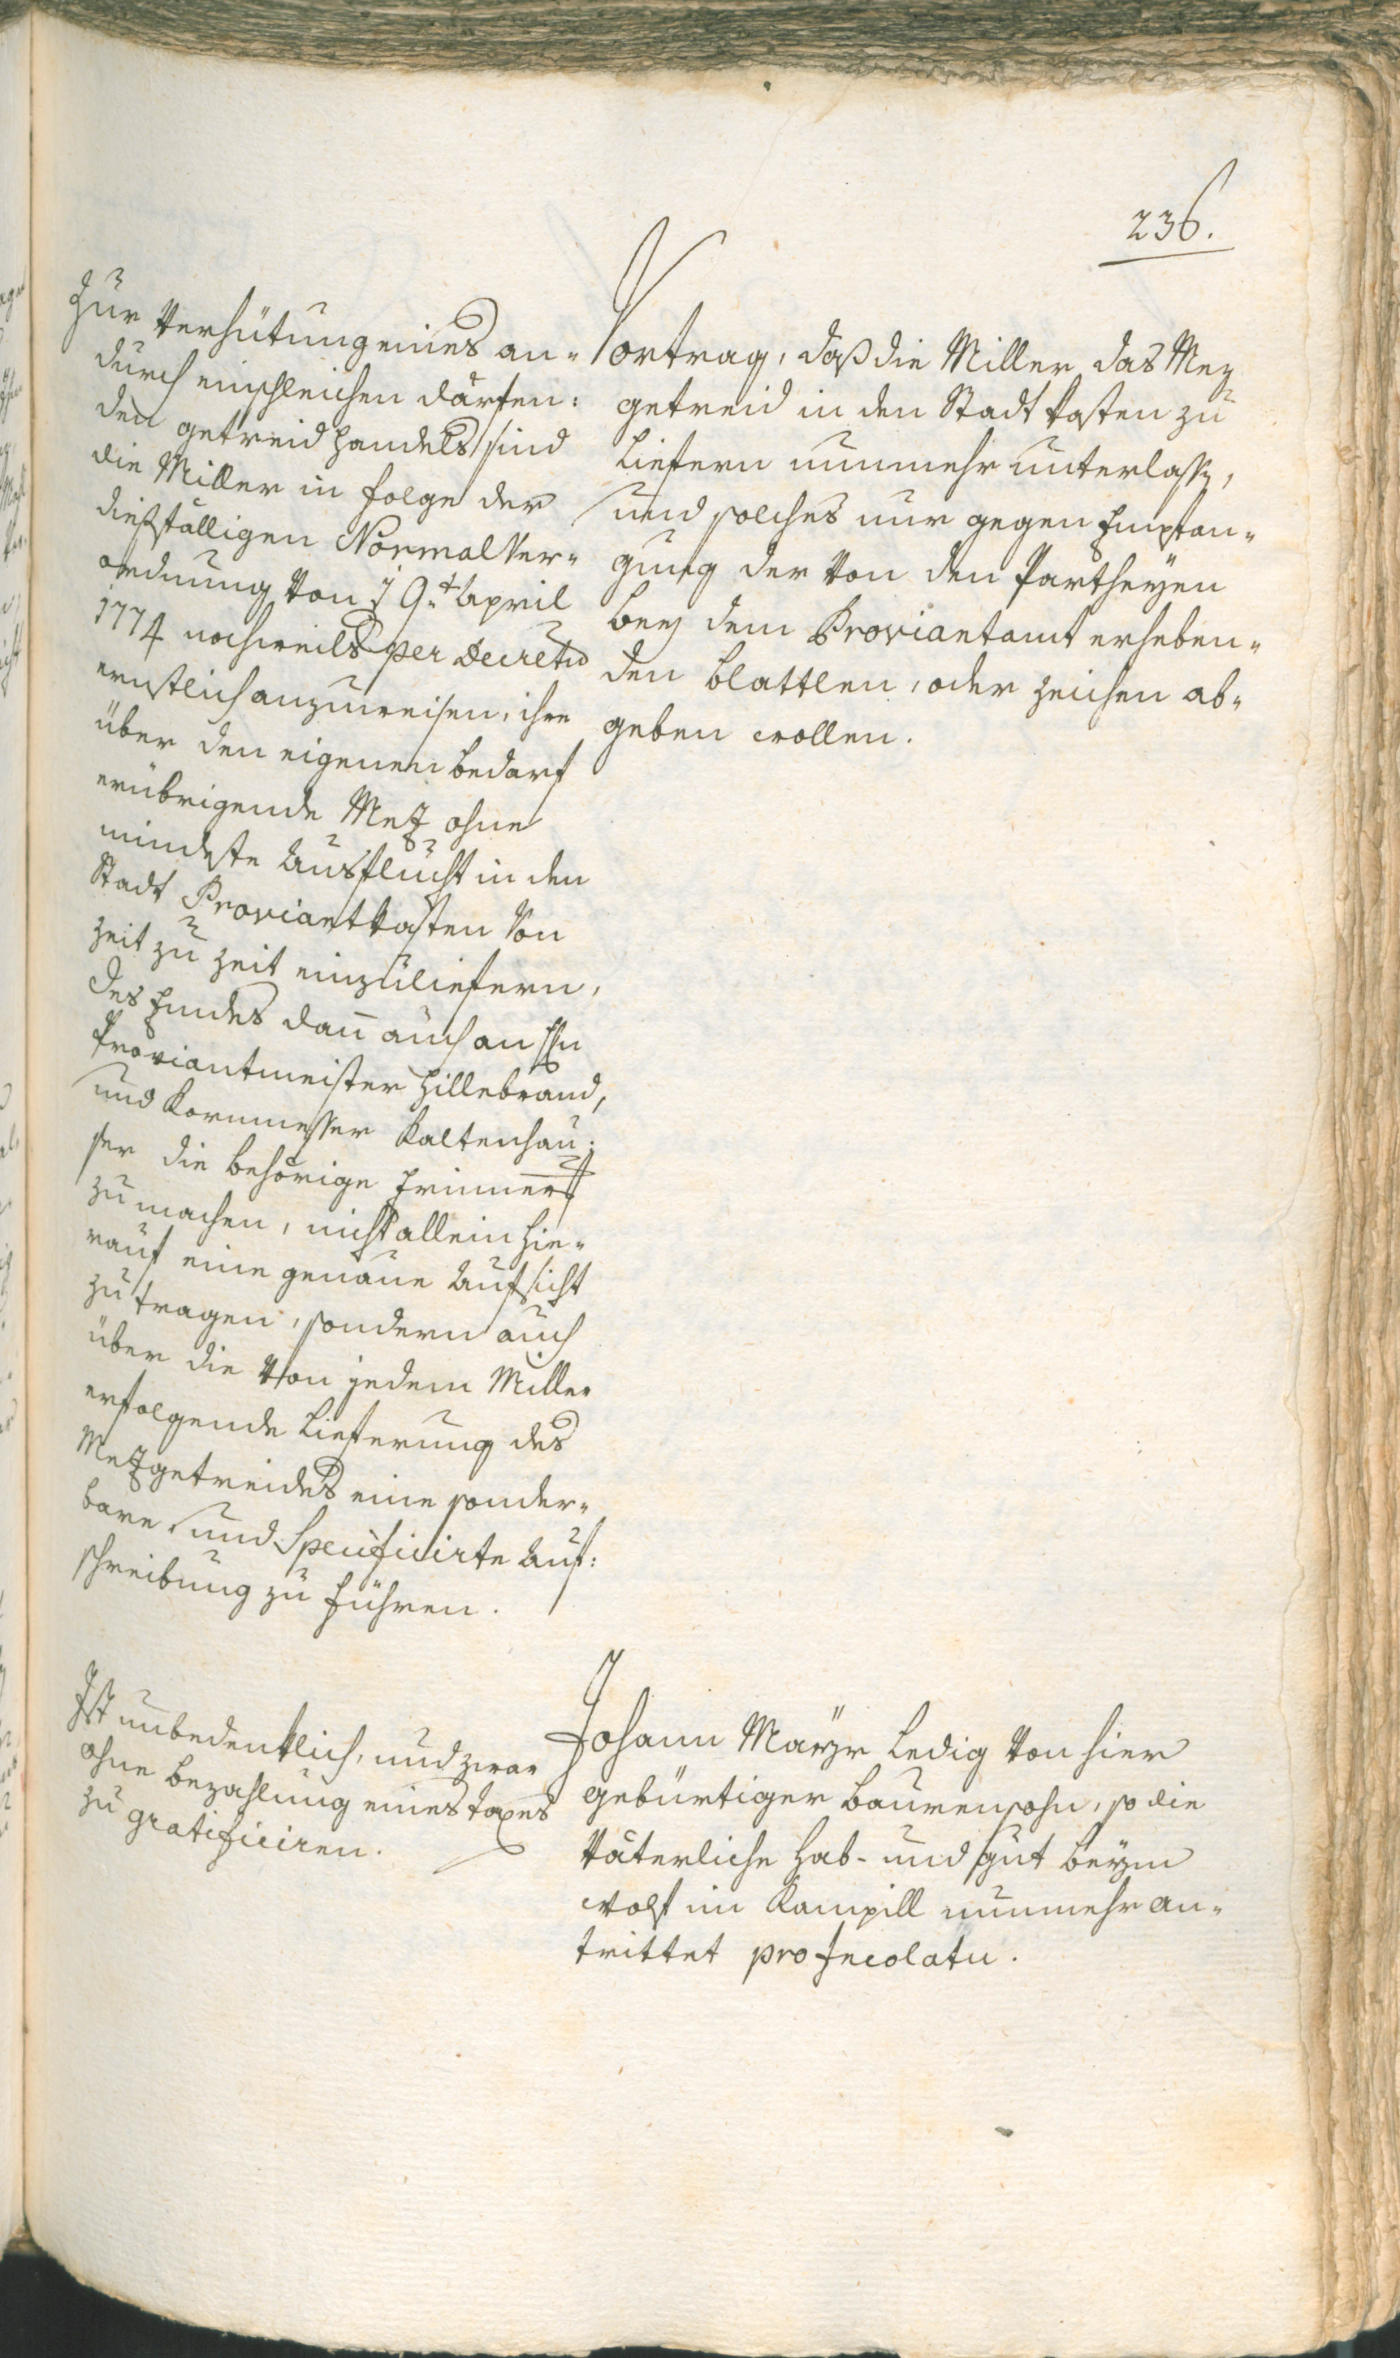 236.
Vortrag, daß die Miller das Mez
getreid in den Stadt kasten zu
liefern nunmehr unterlassen,
und solches nur gegen Empfan„
gung der von den Partheyen
bey dem Proviantamt erheben„
den blattlen, oder zeichen ab„
geben wollen.
Zur Verhütung eines an„
durch einschleichen därfen:
den getreid handels sind
die Miller in folge der
dießfälligen Normal Ver„
ordnung von 19.t April
1774 nochmals per Decretu
ernstlich anzuweisen, ihre
über den eigenen bedarf
erübrigende Metz ohne
mindeste Ausflucht in den
Stadt Proviantkasten von
zeit zu zeit einzuliefern,
des Endes dann auch an Hn
Proviantmeister Hillebrand,
und Kornmesser Kaltenhau:
ser die behörige Erinner
zu machen, nicht allein hie„
rauf eine genaue Aufsicht
zu tragen, sondern auch
über die von jedem Miller
erfolgende Lieferung des
Metzgetreides eine sonder„
bare und Specificirte Auf:
schreibung zu führen.
Johann Mayr ledig von hier
gebürtiger bauren sohn, so die
väterliche Hab- und gut beym
Wolf im Kampill nunmehr an„
trittet pro Incolatu.
Ist unbedenklich, und zwar
ohne bezahlung eines taxes
zu gratificiren.